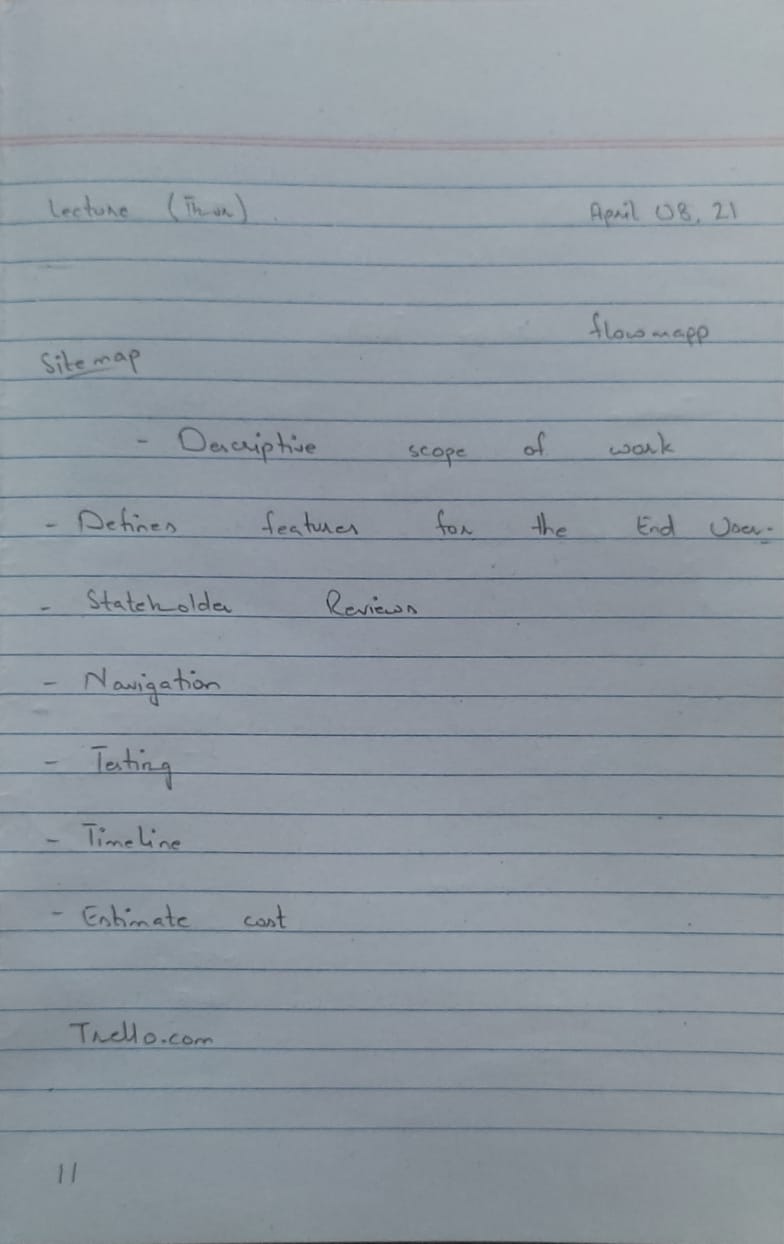 Lecture (Thur) April 08, 21
flowmapp
Sitemap
- Descriptive scope of work
- Defines features for the End User.
- Stateholder Reviews
- Navigation
- Testing
- Timeline
- Estimate cost
Trello.com
11